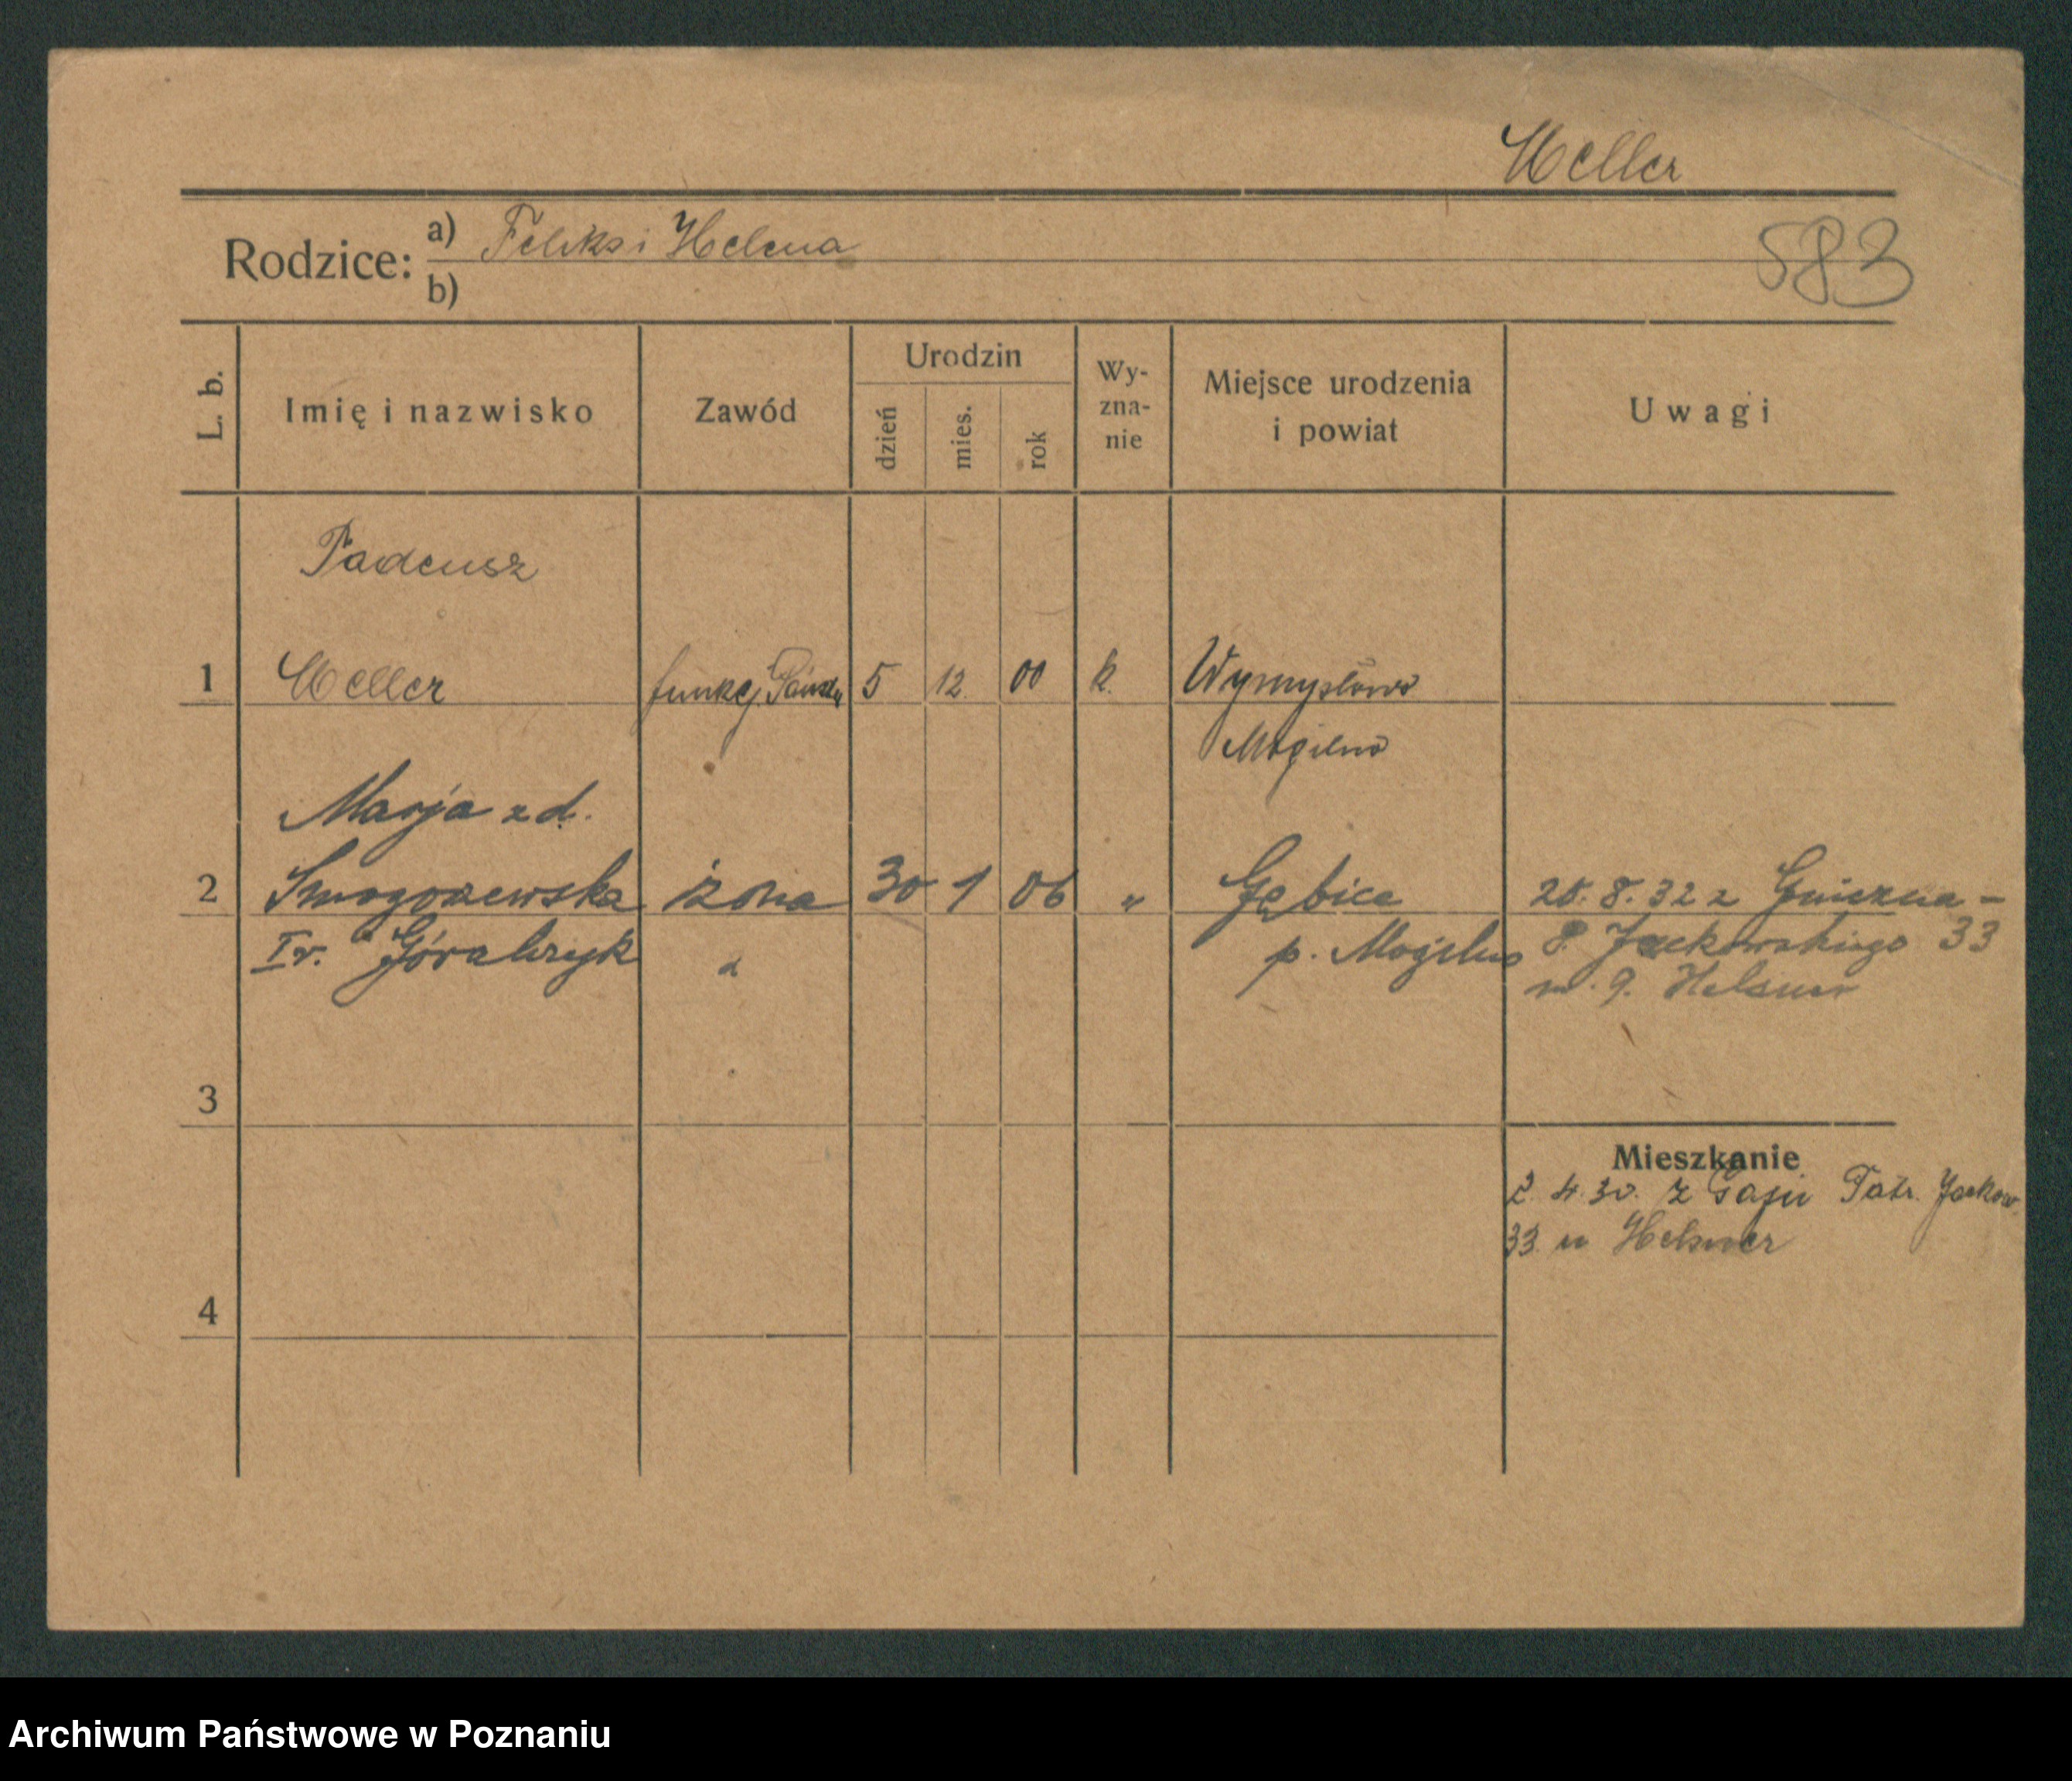 Heller
Rodzice: a) Feliks i Helena
b)
583
L. b.
Imię i nazwisko
Zawód
Urodzin
dzień
mies.
rok
Wy-
zna-
nie
Miejsce urodzenia
i powiat
Uwagi
Tadeusz
1 Heller funkcj. Państw 5 12. 00 k. Wymysłowo
Mogilno
Marja z d.
2 Smogorzewska żona 30 1 06 " Gębice 20.8.32 z Gniezna -
Iv. Góralczyk p. Mogilno P. Jackowskiego 33
m. 9. Helsner
3
Mieszkanie
2. 4. 30. z Patr. Jackow.
33. u Helsner
4
Archiwum Państwowe w Poznaniu